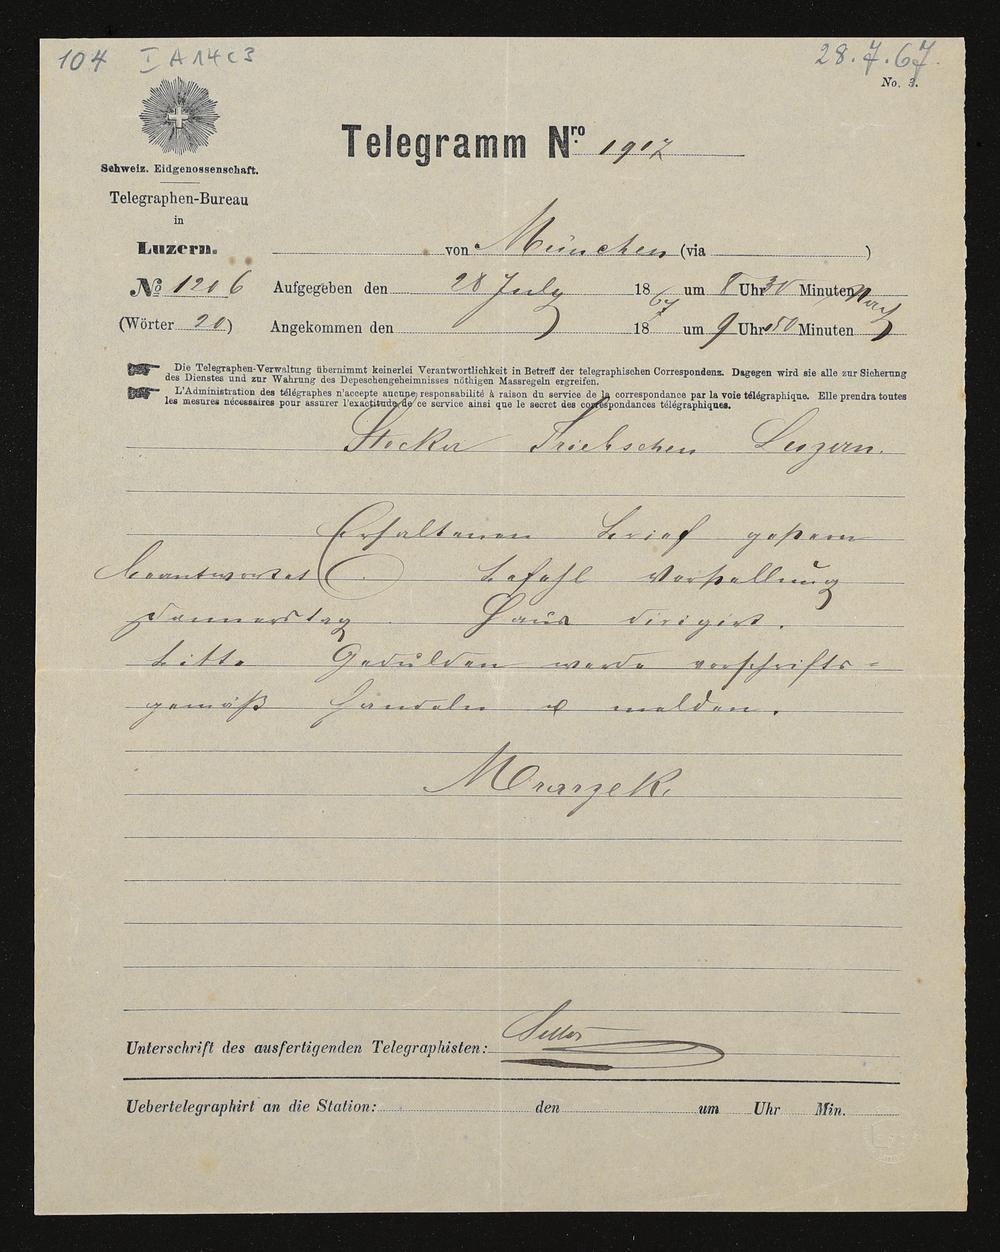 104 I A 14 c 3
28.7.67.
No. 3.
Telegramm Nro. 1917
Schweiz. Eidgenossenschaft.
Telegraphen-Bureau
in
Luzern.
von München (via )
No 1206 Aufgegeben den 28 July 1867 um 8 Uhr 30 Minuten
(Wörter 20) Angekommen den 18 um 9 Uhr 50 Minuten
Die Telegraphen-Verwaltung übernimmt keinerlei Verantwortlichkeit in Betreff der telegraphischen Correspondenz. Dagegen wird sie alle zur Sicherung
des Dienstes und zur Wahrung des Depeschengeheimnisses nöthigen Massregeln ergreifen.
L'Administration des télégraphes n'accepte aucune responsabilité à raison du service de la correspondance par la voie télégraphique. Elle prendra toutes
les mesures nécessaires pour assurer l'exactitude de ce service ainsi que le secret des correspondances télégraphiques.
Stocker Triebschen Luzern.
Erhaltenen brief gestern
beantwortet. befahl Vorstellung
donnerstag. Hans dirigirt.
bitte Gedulden werde vorschrifts=
gemäß handeln & melden.
Mrarzek.
Unterschrift des ausfertigenden Telegraphisten:
Uebertelegraphirt an die Station: den um Uhr Min.